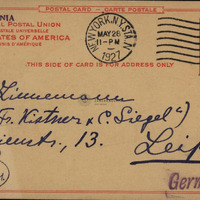 POSTAL CARD — CARTE POSTALE
NIA
L POSTAL UNION
STALE UNIVERSELLE
TES OF AMERICA
NIS D'AMÉRIQUE
NEW YORK, N.Y. STA. N
MAY 28
11-PM
1927
THIS SIDE OF CARD IS FOR ADDRESS ONLY
Linnemann
Fr. Kistner & C. Siegel)
13.
Leip
Germ